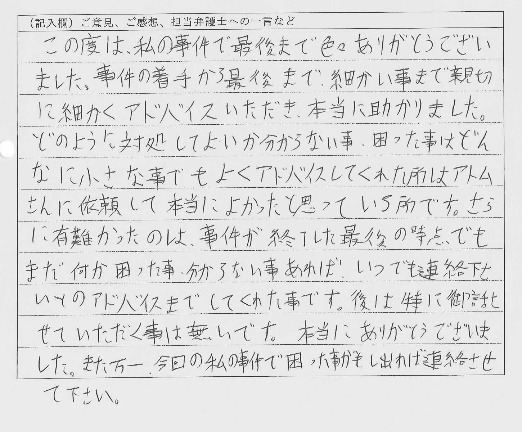 (記入欄) ご意見、ご感想、担当弁護士への一言など
この度は、私の事件で最後まで色々ありがとうござい
ました。事件の着手から最後まで、細かい事まで親切
に細かくアドバイスいただき、本当に助かりました。
どのように対処してよいか分からない事、困った事はどん
なに小さな事でもよくアドバイスしてくれた所はアトム
さんに依頼して本当によかったと思っている所です。さら
に有難かったのは、事件が終了した最後の時点でも
まだ何か困った事、分からない事あれば、いつでも連絡下さ
いとのアドバイスまでしてくれた事です。後は特に御話さ
せていただく事は無いです。本当にありがとうございま
した。また万一、今回の私の事件で困った事がもし出れば連絡させ
て下さい。